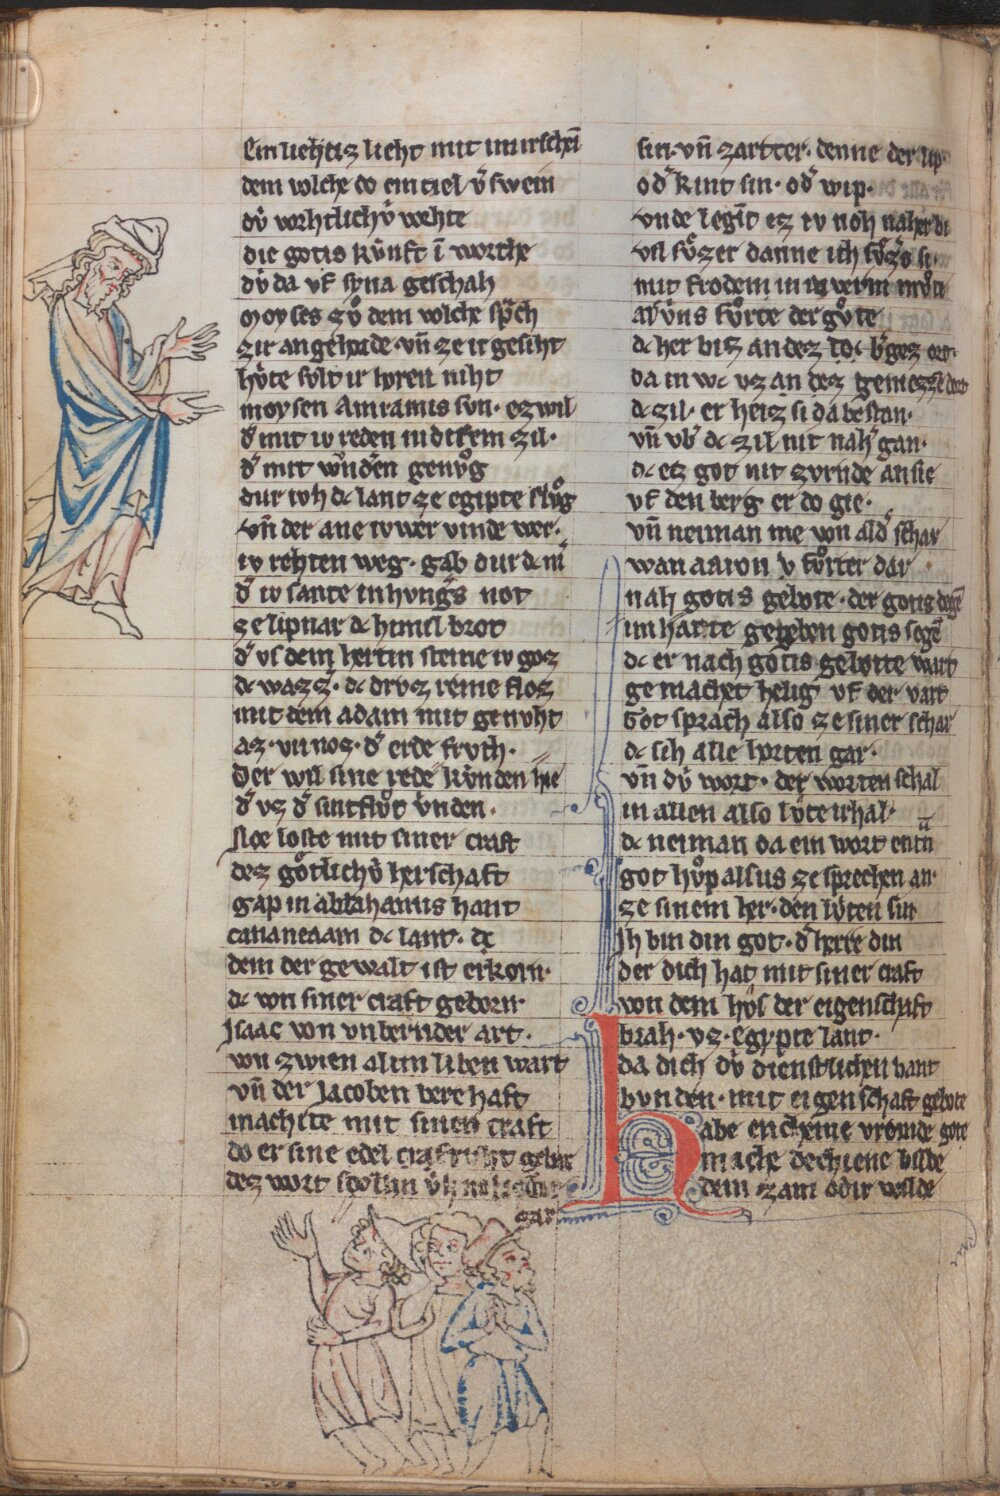 Ein liehtiz lieht mit im rschei̅
dem wolche do en teil v̓swein
dv̓ vorhtlichv̓ wehte
die gotis kv̓nft i̅ worthe
dv̓ da vf syna geschah
moyses zv̊ dem wolche sp̅ch
zir angehorde. vn̅ ze ir gesiht
hv̓te svlt ir horen niht
moysen Amramis svn. ez wil
d̓ mit iv reden in disem zil.
d̓ mit wnd̓en genv̊g
dur ivh dc lant ze egipte slv̊g
vn̅ der ane iwer vinde wer.
iv rehten weg. gab dur dc m̅
d̓ iv sante in hvng̓s not
ze lipnar dc himel brot
d̓ vs dem hertin steine iv goz
dc wazz̓. dc drvz reine floz
mit dem adam mit genvht
az. vn noz. d̓ erde frvth.
Der wil sine rede kv̓nden hie
d̓ vz d̓ sintflv̊t v̓nden.
Noe loste mit siner craft
dez gotlichv̓ herschaft
gap in abbahamis hant
cananeaam dc lant. dc
dem der gewalt ist erkorn.
dc von siner craft geborn.
Jsaac von vnbernder art.
von zwien altin liben wart
vn̅ der Jacoben berehaft
machte mit siner craft
do er sine edel
dez wort
gar
sin. vn̅ zartter. denne der lip.
od̓ kint sin. od̓ wip.
vnde legi̅t ez iv noh naher bi
vn̅ sv̊zer danne ich sv̊zs si.
mit frodem in
alv̓ns fv̊rte der gv̊te
dc her biz an dez
da in wc vz an dez gemezze
dc zil. er heiz si da bestan.
vn̅ vb̓ dc zil nit nah̓ gan.
dc etz got nit zvrnde an sie
vf den berg er do gie.
vn̅ neiman me von ald̓ schar
wan aaron v fv̊rter dar
nah gotis gebote. der gotis dege̅
im harte gegeben gotis sege̅
dc er nach gotis gebotte wart
gemachet helig vf der vart
Got sprach also ze siner schar
dc sih alle horten gar.
vn̅ dv̓ wort. der worten schal
in allen also lv̓te irhal.
dc neiman da ein wort entn̅
got hv̊p alsus ze sprechen an.
ze sinem her. den lv̓ten sin
Jh bin din got. d̓ herre din
der dich hat mit siner craft
von dem hvs der eigenschaft
brah. vz. egypte lant.
da dich dv̓ dienstlichen bant
bvnden. mit eigenschaft gebote
Habe encheine vromde gote
mache dechiene bilde
dem zam odir wilde